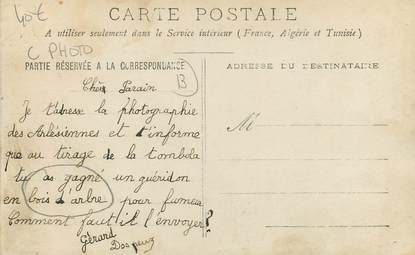 40€
CARTE POSTALE
A utiliser seulement dans le Service intérieur (France, Algérie et Tunisie)
C PHOTO
PARTIE RÉSERVÉE A LA CORRESPONDANCE
ADRESSE DU DESTINATAIRE
13
Cher Parain
Je t'adresse la photographie
des Arlésiennes et t'informe
que au tirage de la tombola
tu as gagné un guéridon
en bois d'arbre pour fumeur
Comment faut il l'envoyer ?
Gérard
M